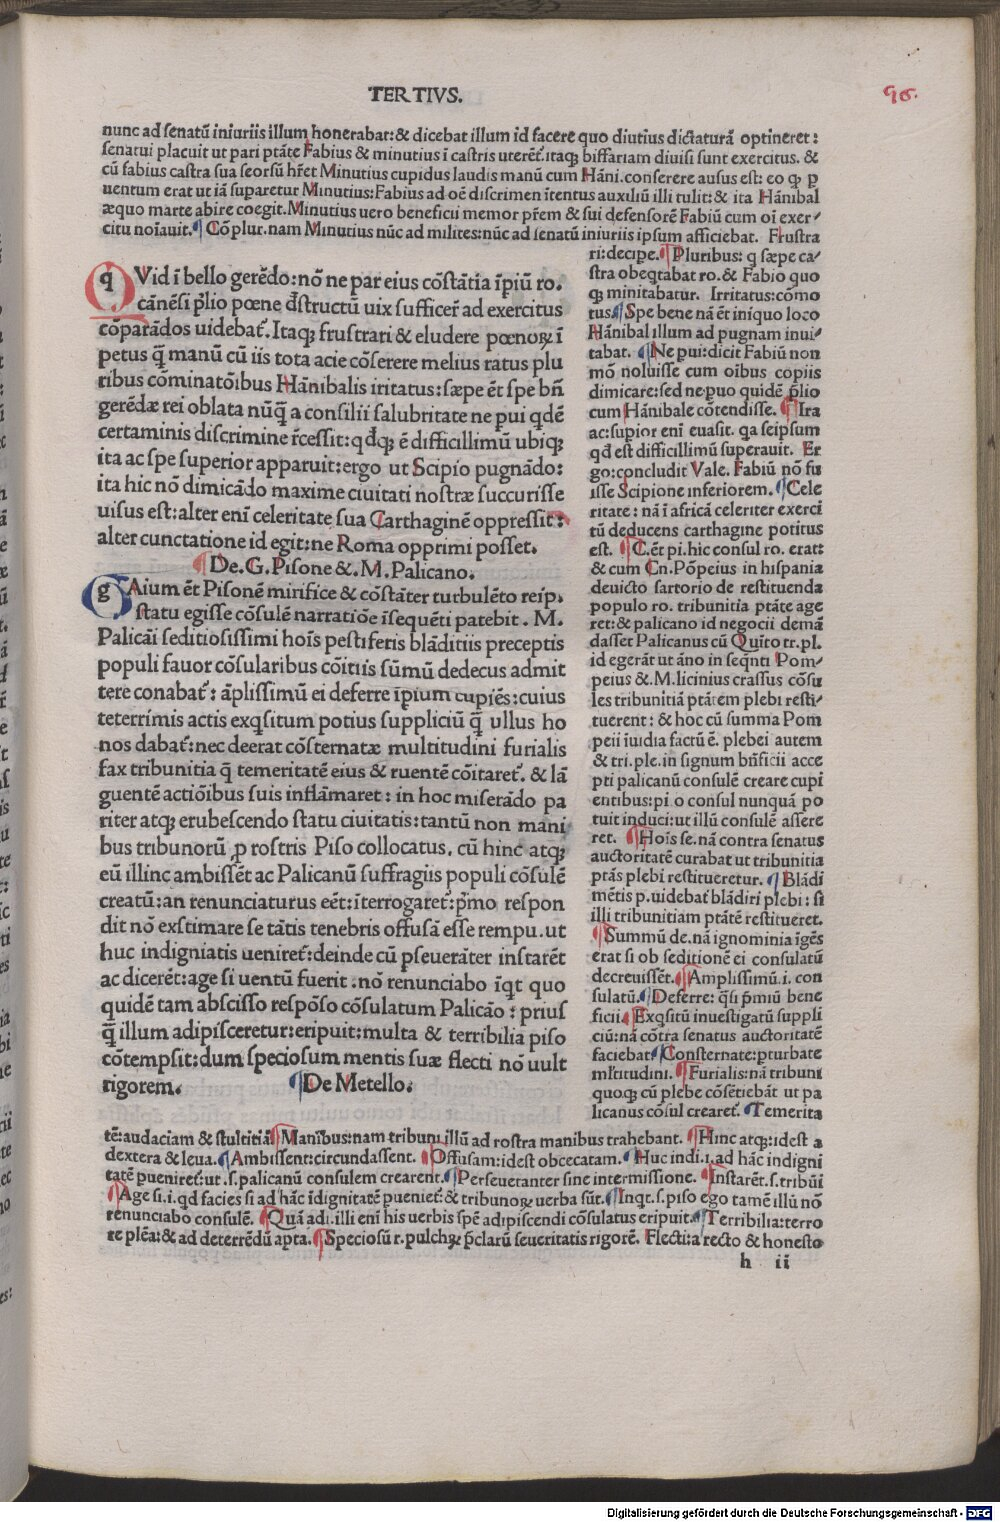 TERTIVS.
96.
nunc ad senatū iniuriis illum honerabat:& dicebat illum id facere quo diutius dictaturā optineret:
senatui placuit ut pari ptāte Fabius & minutius ī castris uterēt̄. itaq; biffariam diuisi sunt exercitus. &
cū fabius castra sua seorsū hr̄et Minutius cupidus laudis manū cum Hāni. conserere ausus est: eo q; ꝑ
uentum erat ut iā suparetur Minutius: Fabius ad oē discrimen ītentus auxiliū illi tulit: & ita Hānibal
æquo marte abire coegit. Minutius uero beneficii memor pr̄em & sui defensorē Fabiū cum oī exer-
citu noīauit. ¶ Cō plur. nam Minutius nūc ad milites: nūc ad senatū iniuriis ipsum afficiebat. Frustra
qVid ī bello gerēdo: nō ne par eius cōstātia īpiū ro.
cānēsi p̄lio pœne d̄structū uix sufficer̄ ad exercitus
cōparādos uidebat̄. Itaq; frustrari & eludere pœnoꝝ ī
petus q̄ manū cū iis tota acie cōserere melius ratus plu
ribus cōminatōibus Hānibalis iritatus: sæpe ēt spe bn̄
gerēdæ rei oblata nūq̄ a consilii salubritate ne pui qdē
certaminis discrimine r̄cessit: qd̄q; ē difficillimū ubiq;
ita ac spe superior apparuit: ergo ut Scipio pugnādo:
ita hic nō dimicādo maxime ciuitati nostræ succurisse
uisus est: alter enī celeritate sua Carthaginē oppressit:
alter cunctatione id egit: ne Roma opprimi posset.
¶ De. G. Pisone &. M. Palicano.
gAium ēt Pisonē mirifice & cōstāter turbulēto reip.
statu egisse cōsulē narratiōe īsequēti patebit. M.
Palicāi seditiosissimi hoīs pestiferis blāditiis preceptis
populi fauor cōsularibus cōitiis sūmū dedecus admit
tere conabat̄: āplissimū ei deferre īpium cupiēs: cuius
teterrimis actis exqsitum potius suppliciū q̄ ullus ho
nos dabat̄: nec deerat cōsternatæ multitudini furialis
fax tribunitia q̄ temeritatē eius & ruentē cōitaret̄. & lā
guentē actiōibus suis inflāmaret: in hoc miserādo pa
riter atq; erubescendo statu ciuitatis: tantū non mani
bus tribunorū ꝓ rostris Piso collocatus. cū hinc atq;
eū illinc ambissēt ac Palicanū suffragiis populi cōsulē
creatū: an renunciaturus eēt: īterrogaret̄: p̄mo respon
dit nō exstimare se tātis tenebris offusā esse rempu. ut
huc indigniatis ueniret̄: deinde cū pseuerāter instarēt
ac dicerēt: age si uentū fuerit. nō renunciabo īqt quo
quidē tam abscisso respōso cōsulatum Palicāo: prius
q̄ illum adipisceretur: eripuit: multa & terribilia piso
cōtempsit: dum speciosum mentis suæ flecti nō uult
rigorem. ¶ De Metello.
ri: decipe. ¶ Pluribus: q sæpe ca-
stra obeqtabat ro. & Fabio quo
q; minitabatur. Irritatus: cōmo
tus. ¶ Spe bene nā ēt iniquo loco
Hānibal illum ad pugnam inui-
tabat. ¶ Ne pui: dicit Fabiū non
mō noluisse cum oībus copiis
dimicare: sed ne puo quidē p̄lio
cum Hānibale cōtendisse. ¶ Ita
ac: supior enī euasit. qa seipsum
qd̄ est difficillimū superauit. Er
go: concludit Vale. Fabiū nō fu
isse Scipione inferiorem. ¶ Cele
ritate: nā ī africā celeriter exerci
tū deducens carthagine potitus
est. ¶ C. ēt pi. hic consul ro. erat:
& cum Cn. Pōpeius in hispania
deuicto sartorio de restituenda
populo ro. tribunitia ptāte age
ret: & palicano id negocii demā
dasset Palicanus cū Quīto tr. pl.
id egerāt ut āno in seqn̄ti Pom-
peius &. M. licinius crassus cōsu
les tribunitiā ptātem plebi resti-
tuerent: & hoc cū summa Pom
peii īuidia factū ē. plebei autem
& tri. ple. in signum bn̄ficii acce
pti palicanū consulē creare cupi
entibus: pi o consul nunquā po
tuit induci: ut illū consulē assere
ret. ¶ Hoīs se. nā contra senatus
auctoritatē curabat ut tribunitia
ptās plebi restitueretur. ¶ Blādi
mētis p. uidebat̄ blādiri plebi: si
illi tribunitiam ptātē restitueret.
¶ Summū de. nā ignominia īgēs
erat si ob seditionē ei consulatū
decreuissēt. ¶ Amplissimū. i. con
sulatū. ¶ Deferre: q̄si p̄miū bene
ficii. ¶ Exqsitū inuestigatū suppli
ciū: nā cōtra senatus auctoritatē
faciebat ¶ Consternate: pturbate
ml̄titudini. ¶ Furialis: nā tribuni
quoq; cū plebe cōsētiebāt ut pa
licanus cōsul crearet̄. ¶ Temerita
tē: audaciam & stultitiā ¶ Manibus: nam tribuni illū ad rostra manibus trahebant. ¶ Hinc atq;: idest a
dextera & leua. ¶ Ambissent: circundassent. ¶ Offusam: idest obcecatam. ¶ Huc indi. i. ad hāc indigni
tatē pueniret̄: ut. s. palicanū consulem crearent. ¶ Perseueranter sine intermissione. ¶ Instarēt. s. tribūi
¶ Age si. i. qd facies si ad hāc īdignitatē pueniet̄: & tribunoꝝ uerba sūt. ¶ Inqt. s. piso ego tamē illū nō
renunciabo consulē. ¶ Quā adi. illi enī his uerbis spē adipiscendi cōsulatus eripuit. ¶ Terribilia: terro
re plēa: & ad deterrēdū apta. ¶ Speciosū r. pulchꝝ p̄clarū seueritatis rigorē. Flecti: a recto & honesto
h ii
Digitalisierung gefördert durch die Deutsche Forschungsgemeinschaft - DFG